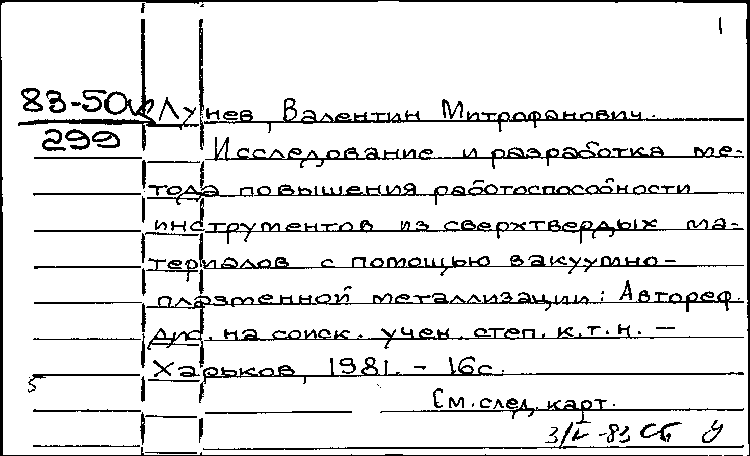 1
83-50
299
Лунев, Валентин Митрофанович.
Исследование и разработка ме-
тода повышения работоспособности
инструментов из сверхтвердых ма-
териалов с помощью вакуумно-
плазменной металлизации: Автореф.
дис. на соиск. учен. степ. к.т.н. –
Харьков, 1981. – 16с.
5
См. след. карт.